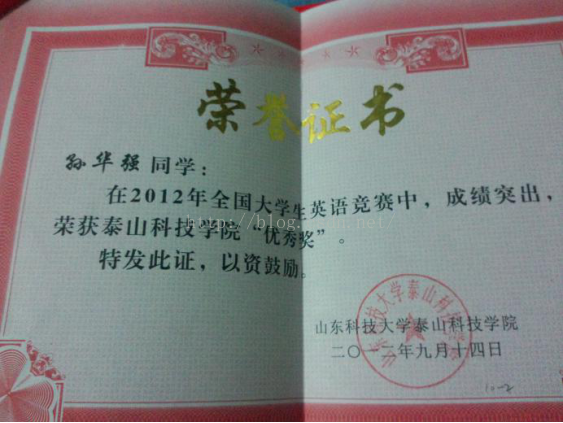 荣誉证书
孙华强同学：
在2012年全国大学生英语竞赛中，成绩突出，
荣获泰山科技学院“优秀奖”。
http://blog.
特发此证，以资鼓励。
山东科技大学泰山科技学院
山东科技大学泰山科技学院
二〇一二年九月十四日